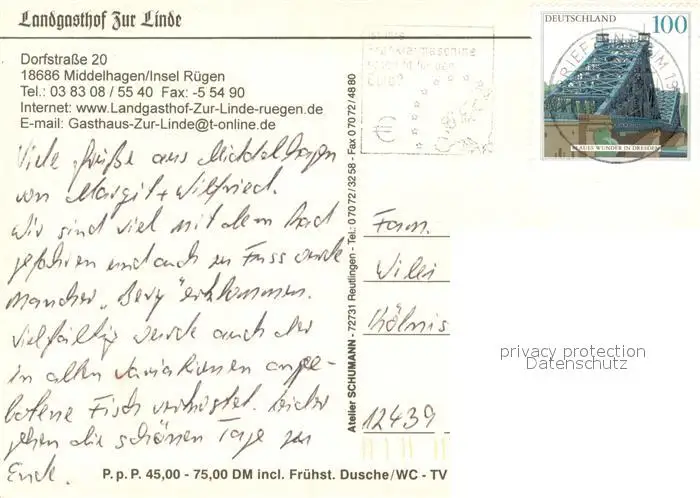 Landgasthof Zur Linde
Dorfstraße 20
18686 Middelhagen/Insel Rügen
Tel.: 03 83 08 / 55 40 Fax: -5 54 90
Internet: www.Landgasthof-Zur-Linde-ruegen.de
E-mail: Gasthaus-Zur-Linde@t-online.de
Viele Grüße aus Middelhagen
von Margit + Wilfried.
Wir sind viel mit dem Rad
gefahren und auch zu Fuss wurde
mancher „Berg" erklommen.
Vielfältig wurde auch der
in allen Variationen ange-
botene Fisch verkostet. Leider
gehen die schönen Tage zu
Ende.
P.p.P. 45,00 - 75,00 DM incl. Frühst. Dusche/WC - TV
Atelier SCHUMANN - 72731 Reutlingen - Tel.: 07072/3258 - Fax 07072/4880
Ist Ihre
Frankiermaschine
bereit für den
Euro?
DEUTSCHLAND 100
BLAUES WUNDER IN DRESDEN
BRIEFZENTRUM
Fam.
Kölnis
12439
privacy protection
Datenschutz